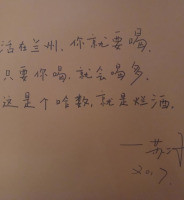 活在兰州，你就要喝，
只要你喝，就会喝多，
这是个哈数，就是烂酒。
——苏
2017